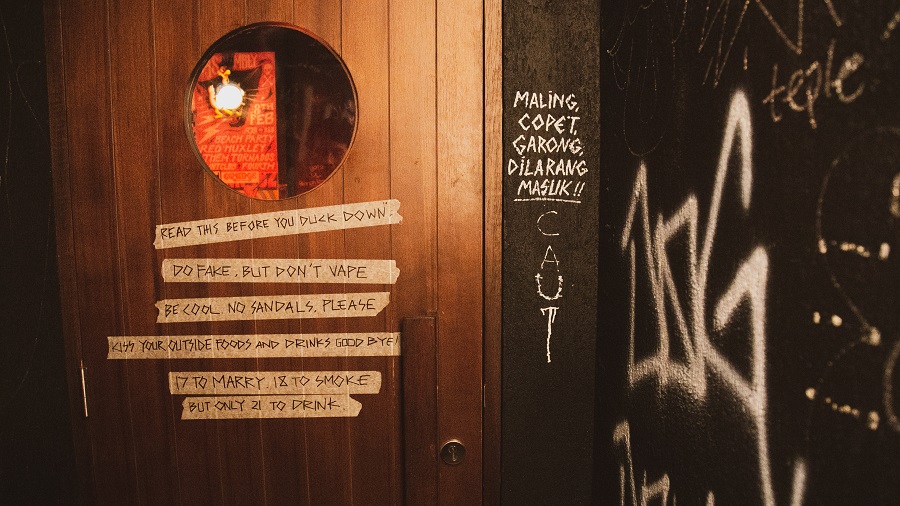 8TH
FEB
BEACH PARTY
RED HUXLEY
THEN TORNADOS
READ THIS BEFORE YOU DUCK DOWN".
DO FAKE, BUT DON'T VAPE
BE COOL NO SANDALS, PLEASE
KISS YOUR OUTSIDE FOODS AND DRINKS GOOD BYE!
17 TO MARRY, 18 TO SMOKE
BUT ONLY 21 TO DRINK.
MALING,
COPET,
GARONG,
DILARANG
MASUK!!
CAUT
teple